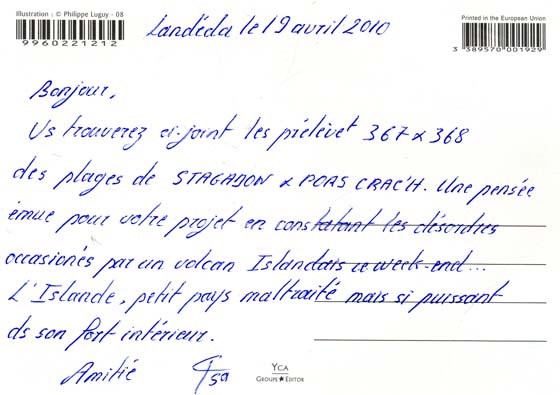 Illustration : © Philippe Luguy - 08
9960221212
Printed in the European Union
3 389570 001929
Landéda le 19 avril 2010
Bonjour,
Us trouverez ci-joint les prélèvet 367 & 368
des plages de STAGADON & PORS CRAC'H. Une pensée
émue pour votre projet en constatant les désordres
occasionés par un volcan Islandais ce week-end...
L'Islande, petit pays maltraité mais si puissant
ds son fort intérieur.
Amitié
YCA
GROUPE★EDITOR